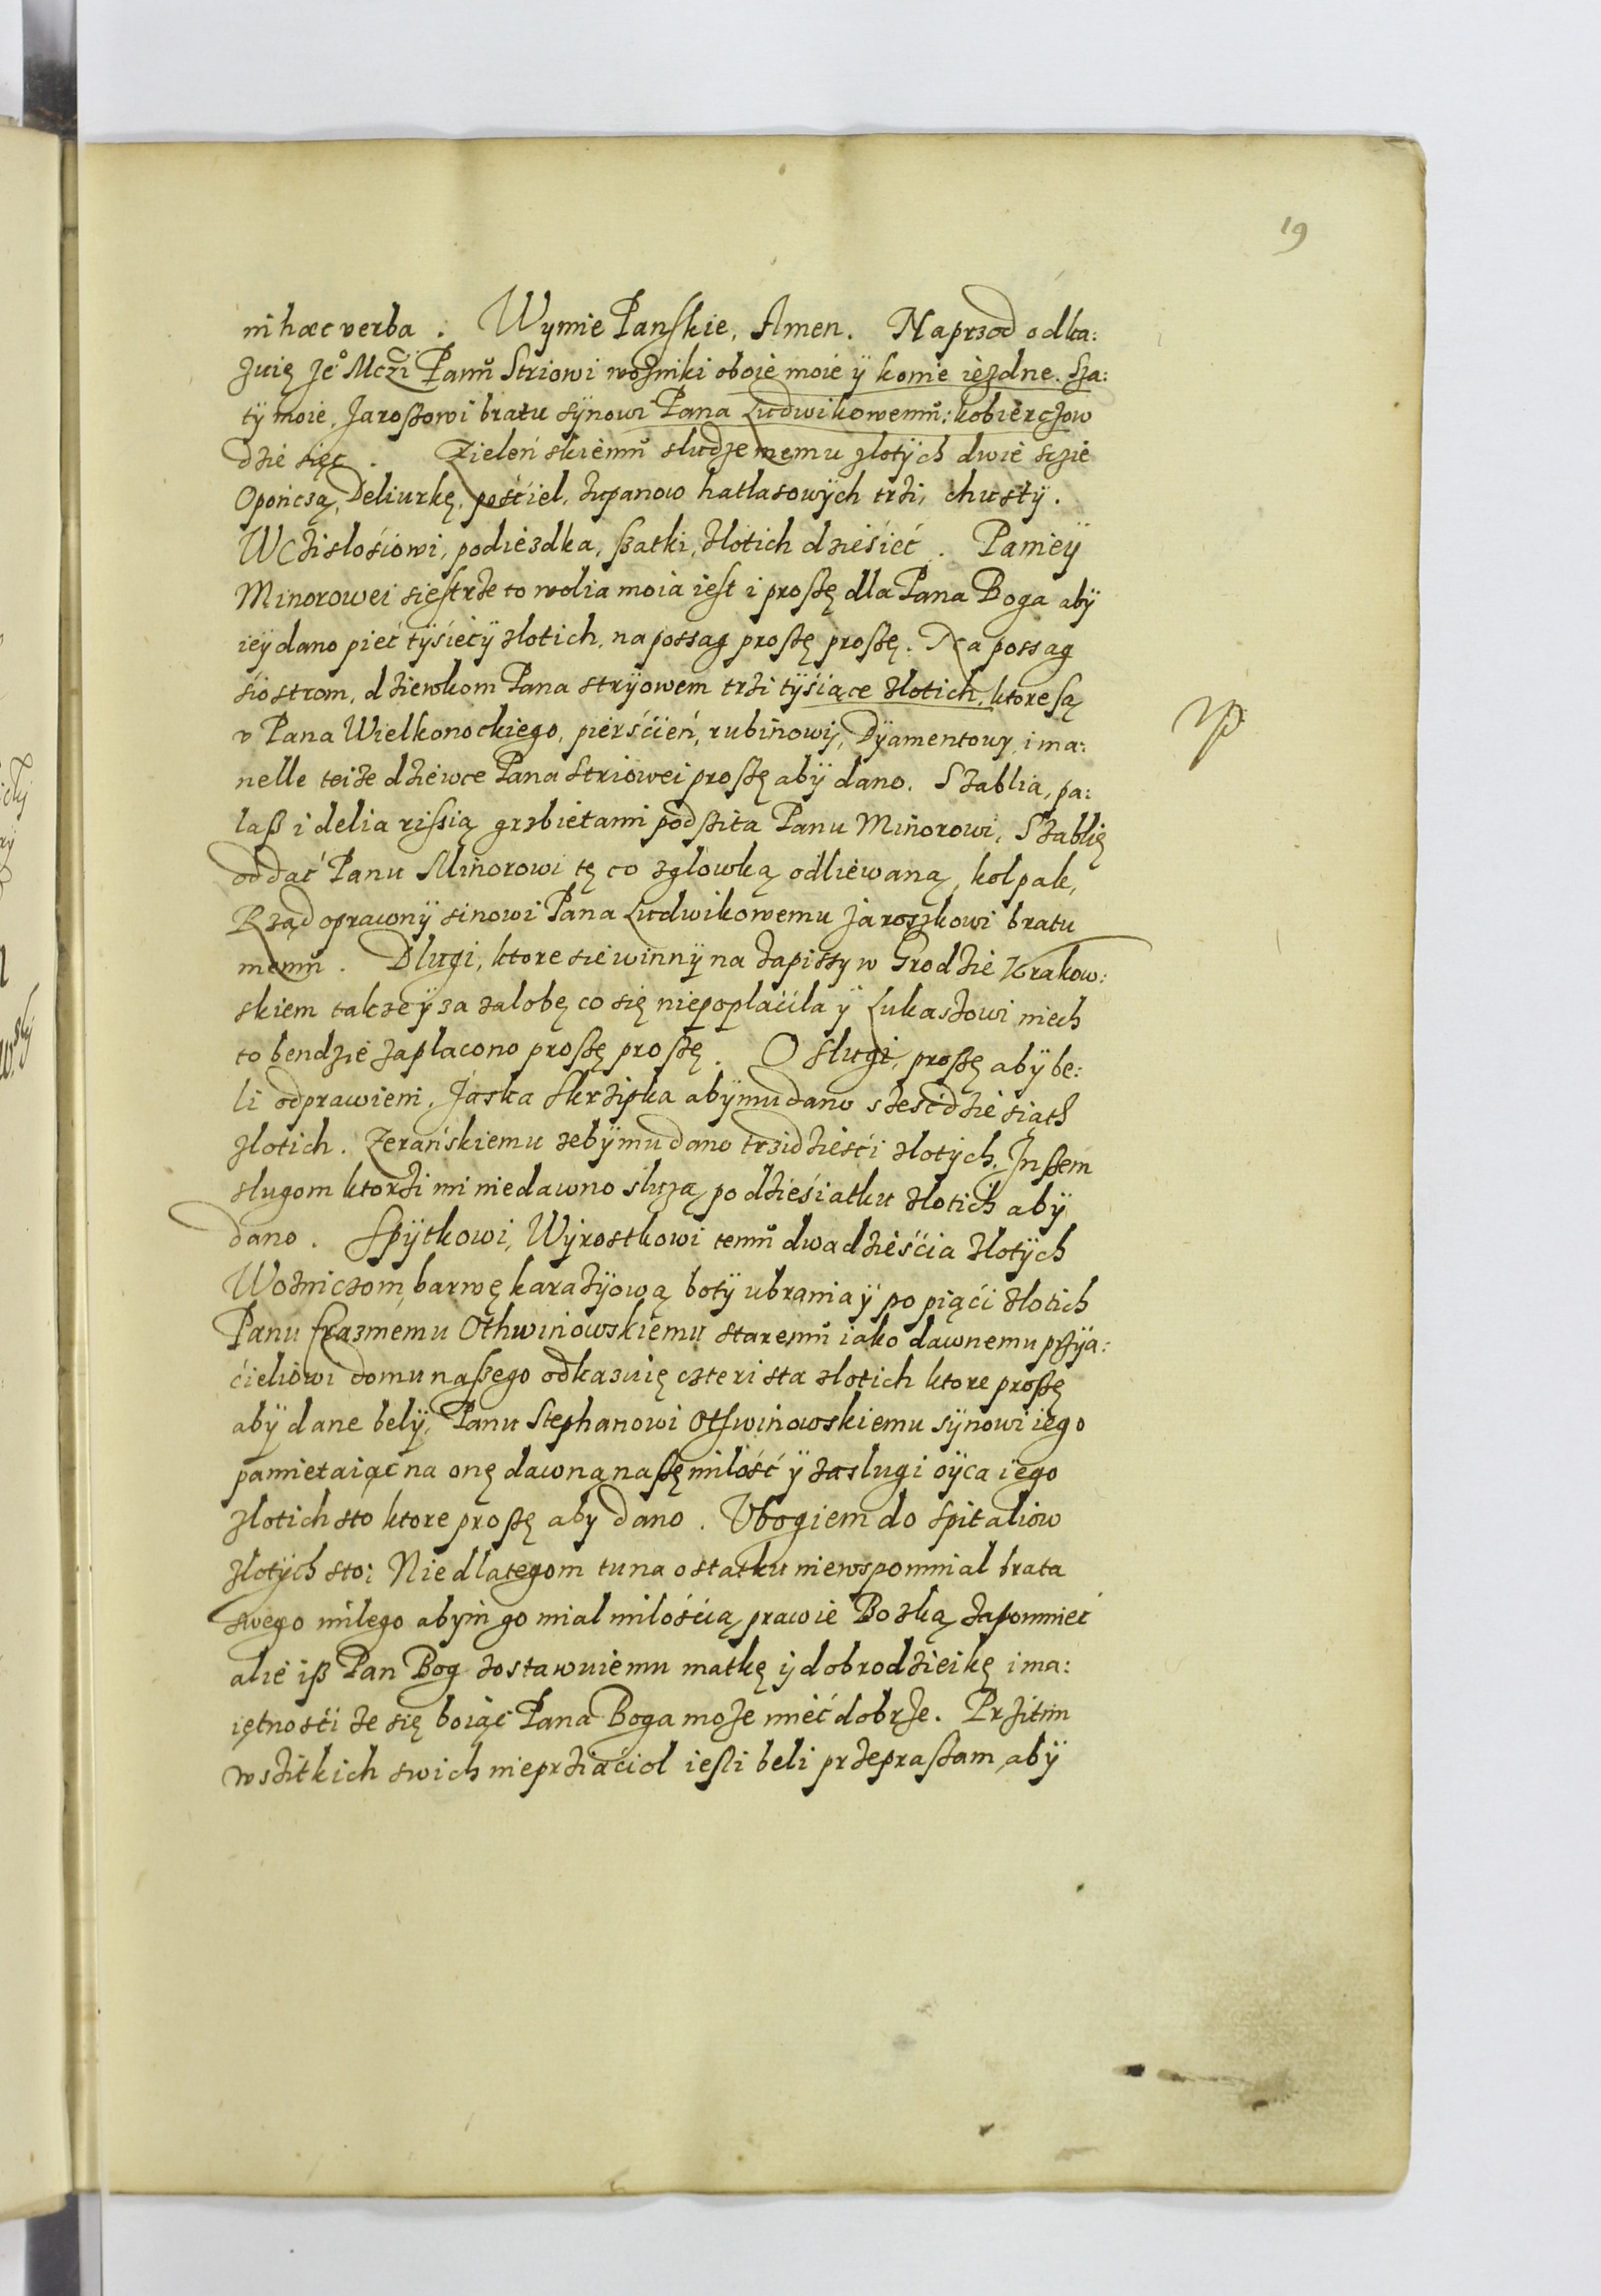 19
in hæc verba. Wymie Panskie, Amen. Naprzod odka:
zuię Je° Mczi Panŭ Striowi wozniki oboie moie ÿ konie iezdne. Sza:
tÿ moie, Jaroszowi bratu sÿnowi Pana Ludwikowemŭ: kobierczow
dzie sięć. Zieleńskiemŭ słudze memu złotÿch dwie scie
Opończą, Deliurkę, pościel, żupanow hatłasowÿch trzi, chustÿ.
Wczisłosiowi, podiezdka, szatki, złotich dziesięć. Paniey
Minorowei siestrze to wolia moia iest i proszę dla Pana Boga abÿ
ieÿ dano pieć tÿsiecÿ złotich, na possag proszę proszę. Na possag
siostrom, dziewkom Pana strÿowem trzi tÿsiące złotich, ktore są
v Pana Wielkonockiego, pierścień, rubinowÿ, Dÿamentowy, i ma:
nelle teize dziewce Pana Striowei proszę abÿ dano. Szablia, pa:
łasz i delia rissią grzbietami podszita Panu Minorowi, Szablię
oddać Panu Minorowi tę co zgłowką odliewaną, kołpak,
Rząd oprawnÿ sinowi Pana Ludwikowemu Jaroszkowi bratu
memŭ. Dlugi, ktore sie winnÿ na zapissy w Grodzie Krakow:
skiem takze ÿ za załobę co się niepopłaciła ÿ Lukaszowi niech
to bendzie zapłacono proszę proszę. O sługi, proszę abÿ be:
li odprawieni, Jaska Skrzipka abÿ mu dano szescdziesiąth
złotich. Zerańskiemu zebÿ mu dano trzidziesci złotÿch, Inszem
sługom ktorzi mi niedawno służą, po dziesiatku złotich abÿ
dano. Spÿtkowi, Wÿrostkowi temŭ dwadzieścia złotÿch
Wozniczom, barwę karazÿową botÿ ubrania ÿ po piąci złotich
Panu Erazmemu Othwinowskiemu staremŭ iako dawnemu przÿia:
cieliowi domu naszego odkazuię czterista złotich ktore proszę
abÿ dane belÿ, Panu Stephanowi Othwinowskiemu sÿnowi iego
pamietaiąc na onę dawną naszę miłość ÿ zasługi oÿca iego
złotich sto ktore proszę aby dano. Vbogiem do spitaliow
złotÿch sto; Nie dlategom tu na ostatku niewspomniał brata
swego miłego abym go miał miłoscią prawie Boską zapomnieć
alie isz Pan Bog zostawuie mu matkę ÿ dobrodzieikę i ma:
iętności ze się boiąc Pana Boga może mieć dobrze. Przitim
wszitkich swich nieprziaciol iesli beli przepraszam, abÿ